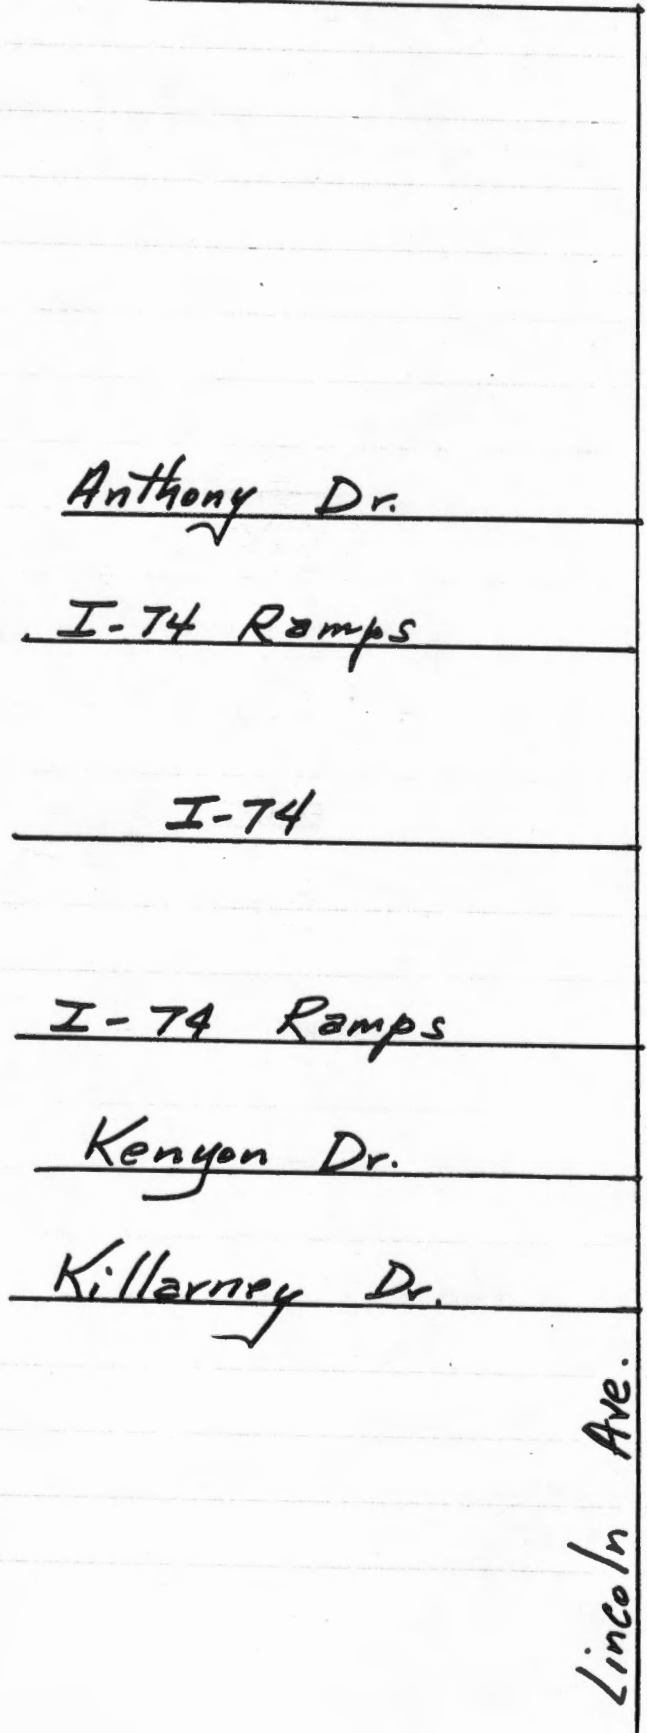 Anthony Dr.
I-74 Ramps
I-74
I-74 Ramps
Kenyon Dr.
Killarney Dr.
Lincoln Ave.